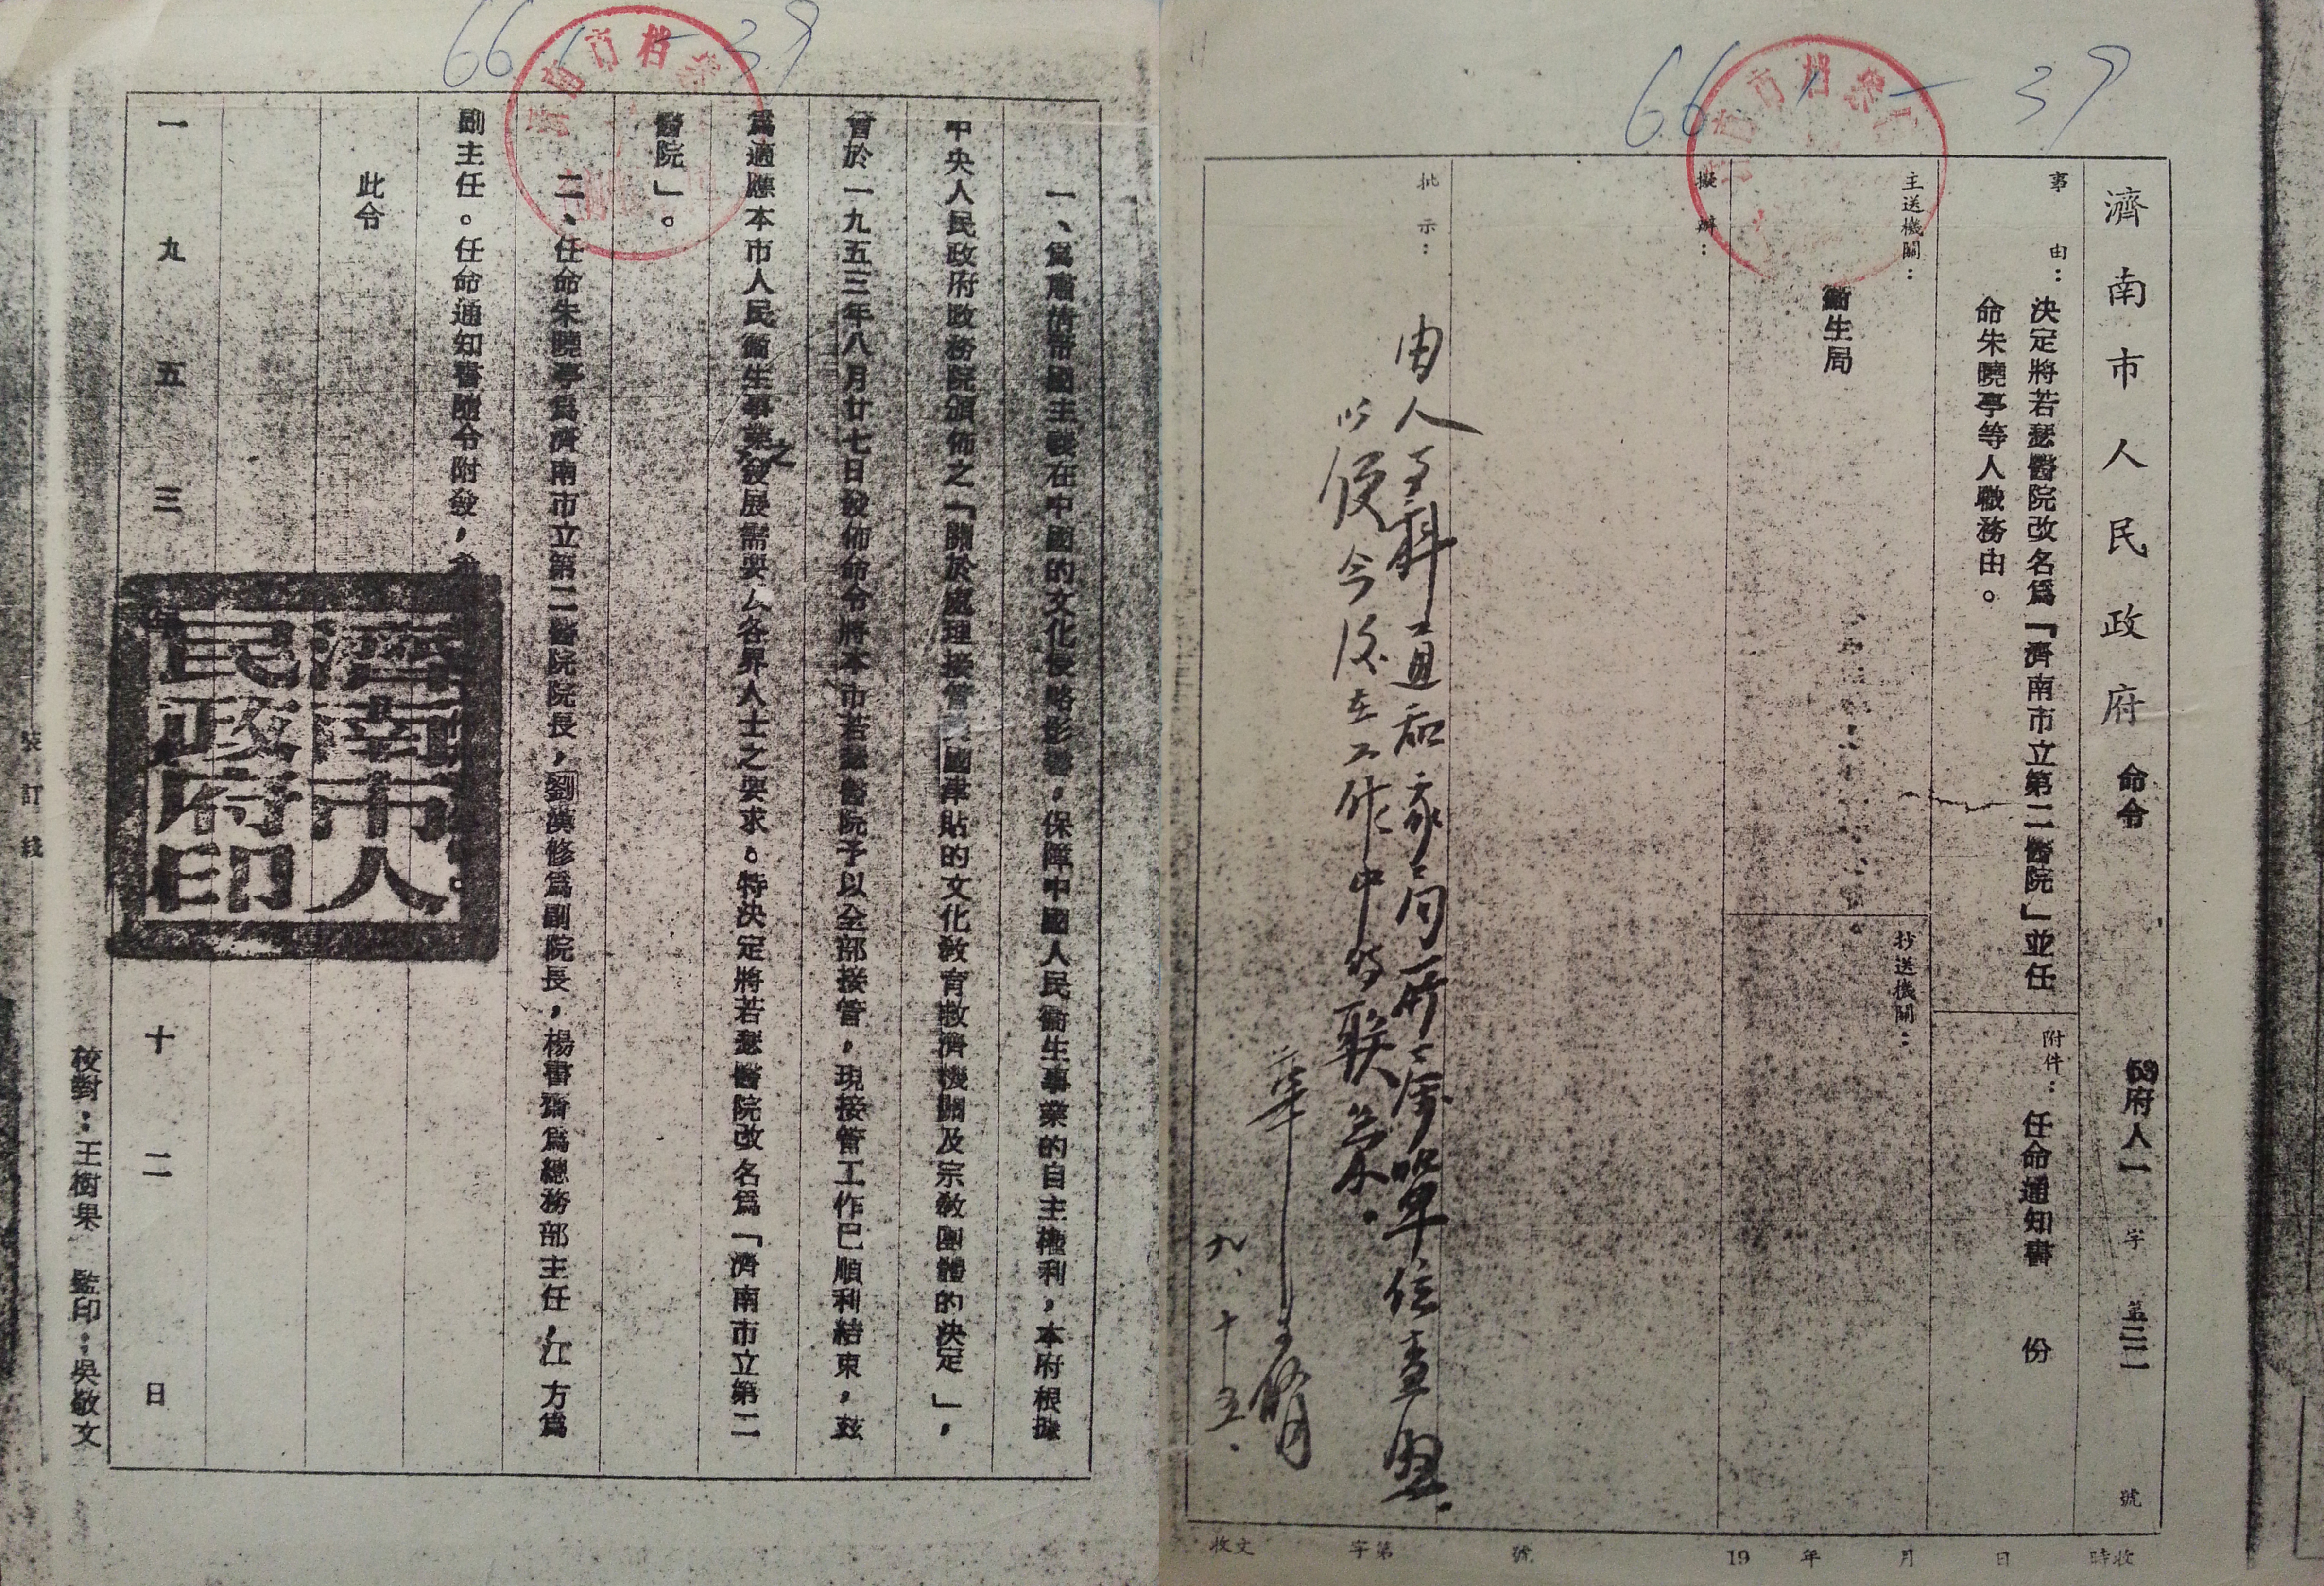 66 1 - 39
濟南市人民政府 命令 53府人一 字 第三二 號
事由：決定將若瑟醫院改名爲「濟南市立第二醫院」並任
命朱曉亭等人職務由。
附件：任命通知書 份
主送機關：
衞生局
抄送機關：
擬辦：
批示：
由人事科通知
以便今後在工作中的联系.
九.十五.
收文 字第 號 19 年 月 日 時收
66 1 - 39
濟南市檔案
一、爲肅清帝國主義在中國的文化侵略影響，保障中國人民衞生事業的自主權利，本府根據
中央人民政府政務院頒佈之「關於處理接管美國津貼的文化教育救濟機關及宗教團體的決定」，
曾於一九五三年八月廿七日發佈命令將本市若瑟醫院予以全部接管，現接管工作已順利結束，茲
爲適應本市人民衞生事業之發展需要及各界人士之要求。特決定將若瑟醫院改名爲「濟南市立第二
醫院」。
二、任命朱曉亭爲濟南市立第二醫院院長，劉漢修爲副院長，楊書齋爲總務部主任，江方爲
副主任。任命通知書隨令附發，
此令
一九五三年 十二日
濟南市人
民政府印
校對：王樹果 監印：吳敬文
裝訂綫